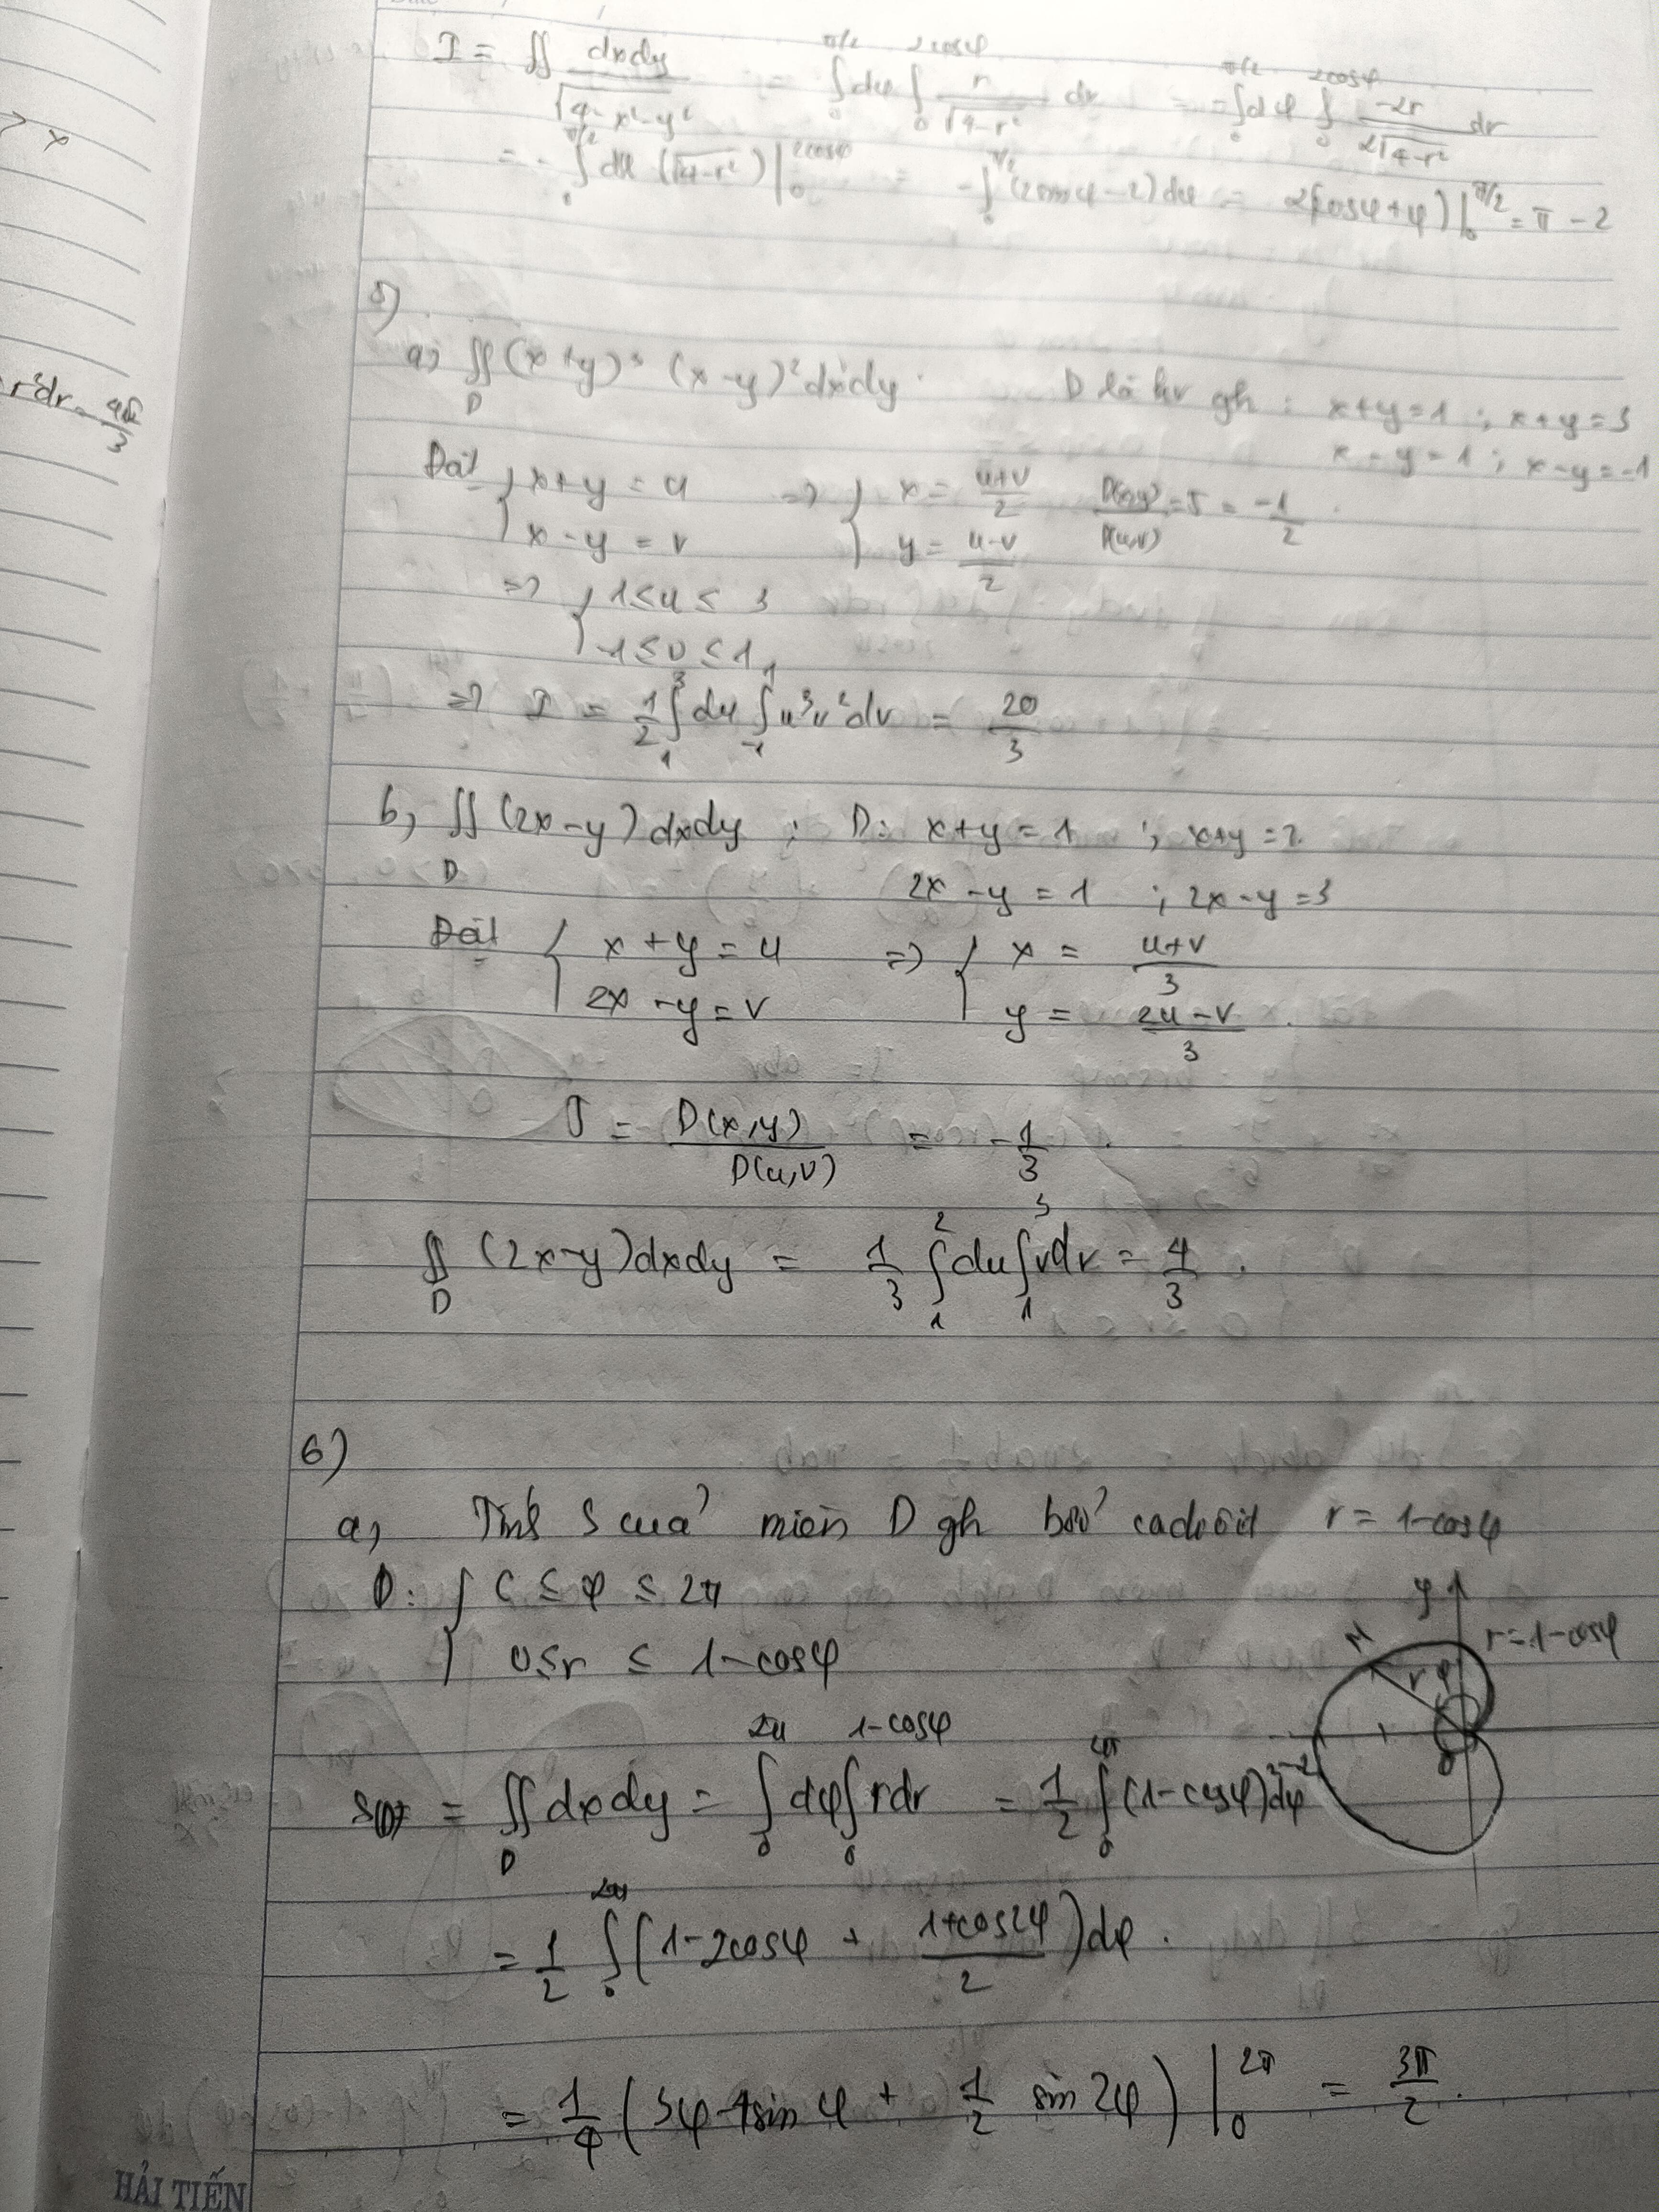 I = ∬ dxdy/√(4-x²-y²) = ∫₀^{π/2} dφ ∫₀^{2cosφ} r/√(4-r²) dr = -∫₀^{π/2} dφ ∫₀^{2cosφ} -2r/(2√(4-r²)) dr
= -∫₀^{π/2} dφ (√(4-r²))|₀^{2cosφ} = -∫₀^{π/2} (2sinφ-2)dφ = 2(cosφ+φ)|₀^{π/2} = π - 2
5)
a, ∬_D (x+y)³ (x-y)² dxdy. D là hv gh : x+y=1 ; x+y=3
x-y=1 ; x-y=-1
Đặt { x+y = u ; x-y = v => { x = (u+v)/2 ; y = (u-v)/2 D(x,y)/D(u,v) = J = -1/2.
=> { 1≤u≤3 ; -1≤v≤1
=> I = 1/2 ∫₁³ du ∫₋₁¹ u³v²dv = 20/3
b, ∬_D (2x-y)dxdy ; D: x+y=1 ; x+y=2
2x-y=1 ; 2x-y=3
Đặt { x+y=u ; 2x-y=v => { x = (u+v)/3 ; y = (2u-v)/3.
J = D(x,y)/D(u,v) = -1/3.
∬_D (2x-y)dxdy = 1/3 ∫₁² du ∫₁³ vdv = 4/3.
6)
a, Tính S của miền D gh bởi cadioit r = 1-cosφ
D: { 0 ≤ φ ≤ 2π
0≤r ≤ 1-cosφ
y
r=1-cosφ
M
r φ
-2
0
S(D) = ∬_D dxdy = ∫₀^{2π} dφ ∫₀^{1-cosφ} rdr = 1/2 ∫₀^{2π} (1-cosφ)²dφ
= 1/2 ∫₀^{2π} (1-2cosφ + (1+cos2φ)/2)dφ.
= 1/4 (3φ-4sinφ + 1/2 sin2φ)|₀^{2π} = 3π/2.
HẢI TIẾN